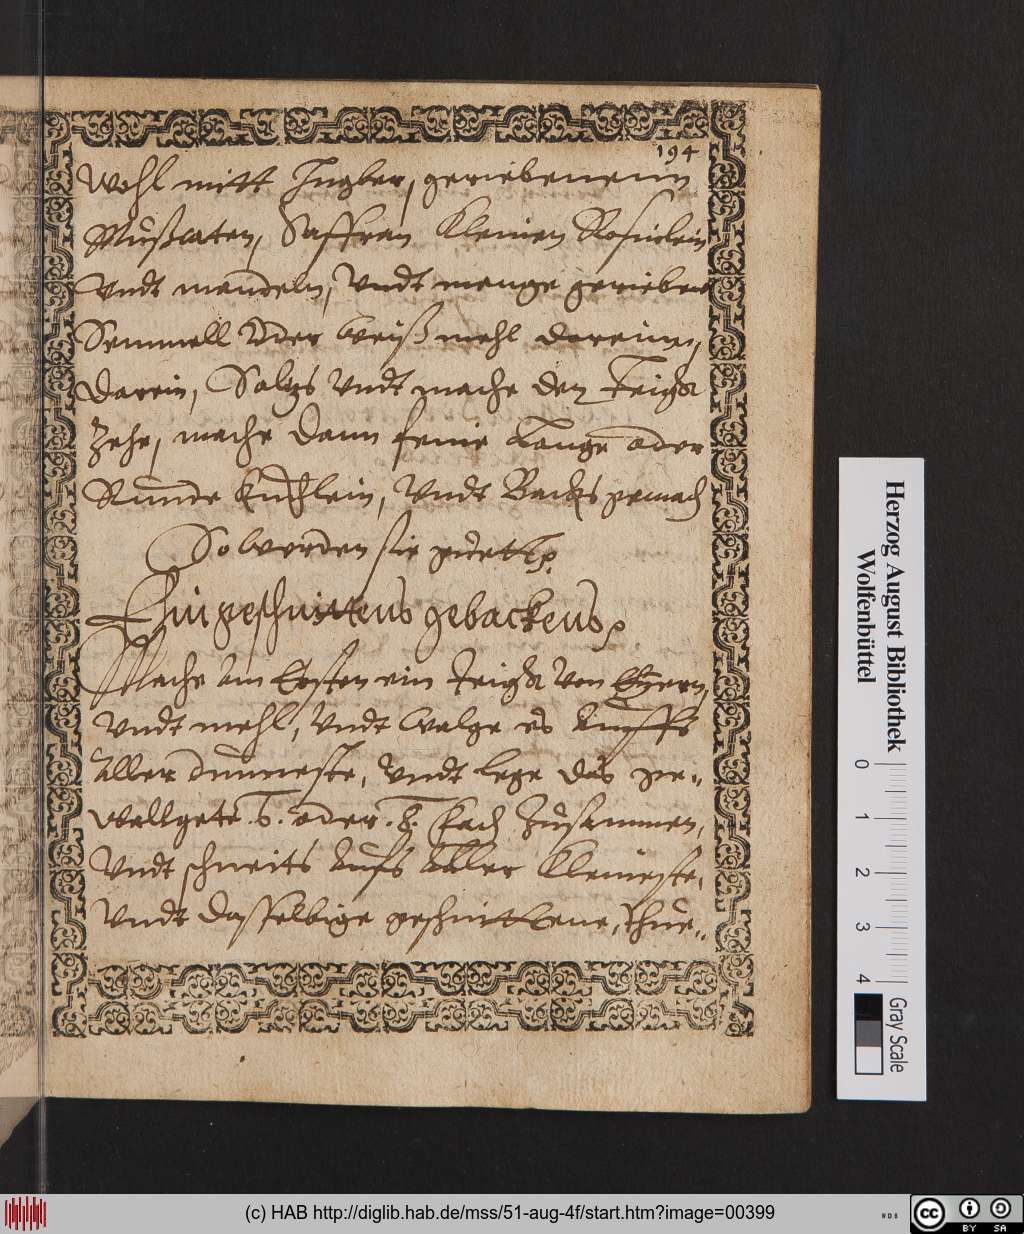 194
Wohl mitt Ingber, geriebenenn
Mußcaten, Saffran Kleinen Rosinlein
Undt mandeln, Undt menge gerieben
Semmell Oder weiß mehl dareinn,
darein, Saltzs Undt mache den Teigk
Zehe, mache dann feine Lange oder
Runde Kuchlein, Undt Backs gemach
So werden sie guett.
Ein geschnittens gebackens
Mache am Ersten ein Teigk von Eyern,
Undt mehl, Undt walge es auffs
aller dünneste, Undt lege das ge-
wallgete .6. oder .8. fach zusammen,
Undt schneits aufs aller Kleineste,
Undt dasselbige geschnittene, thue
Herzog August Bibliothek
Wolfenbüttel
0 1 2 3 4
Gray Scale
(c) HAB http://diglib.hab.de/mss/51-aug-4f/start.htm?image=00399
WDB
cc
BY SA